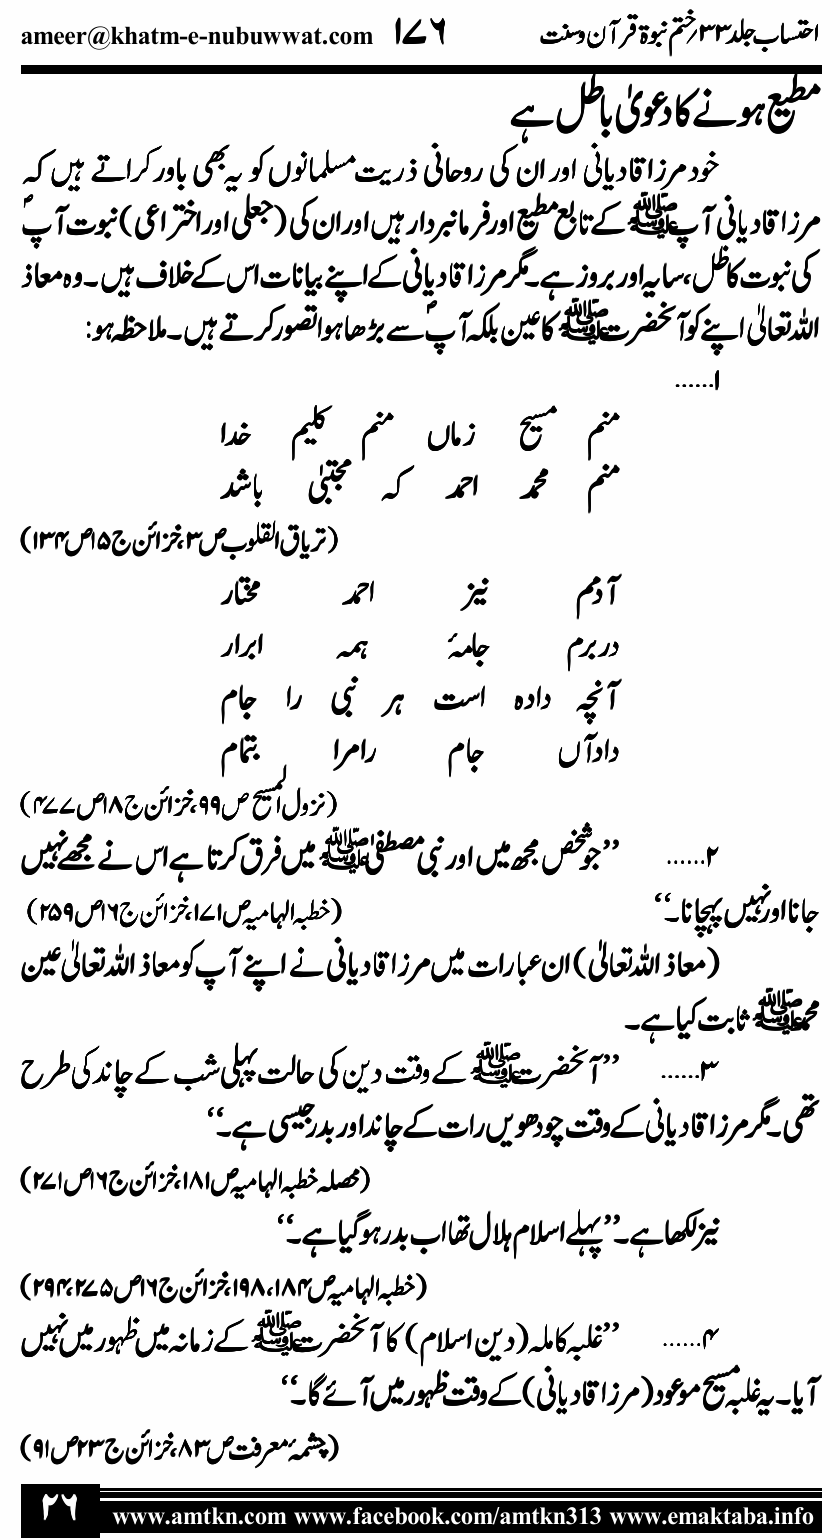 احتساب جلد ۳۳؍ختم نبوۃ قرآن وسنت ۱۷۶ ameer@khatm-e-nubuwwat.com
مطیع ہونے کا دعویٰ باطل ہے
خود مرزا قادیانی اور ان کی روحانی ذریت مسلمانوں کو یہ بھی باور کراتے ہیں کہ
مرزا قادیانی آپ ﷺ کے تابع مطیع اور فرمانبردار ہیں اور ان کی (جعلی اور اختراعی) نبوت آپؐ
کی نبوت کا ظل، سایہ اور بروز ہے۔ مگر مرزا قادیانی کے اپنے بیانات اس کے خلاف ہیں۔ وہ معاذ
اللہ تعالیٰ اپنے کو آنحضرت ﷺ کا عین بلکہ آپؐ سے بڑھا ہوا تصور کرتے ہیں۔ ملاحظہ ہو:
۱......
منم مسیح زماں منم کلیم خدا
منم محمد احمد کہ مجتبیٰ باشد
(تریاق القلوب ص۳، خزائن ج۱۵ ص۱۳۴)
آدمم نیز احمد مختار
در برم جامۂ ہمہ ابرار
آنچہ دادہ است ہر نبی را جام
داد آں جام را مرا بتمام
(نزول المسیح ص۹۹، خزائن ج۱۸ ص۴۷۷)
۲...... ’’جو شخص مجھ میں اور نبی مصطفیٰ ﷺ میں فرق کرتا ہے اس نے مجھے نہیں
جانا اور نہیں پہچانا۔‘‘ (خطبہ الہامیہ ص۱۷۱، خزائن ج۱۶ ص۲۵۹)
(معاذ اللہ تعالیٰ) ان عبارات میں مرزا قادیانی نے اپنے آپ کو معاذ اللہ تعالیٰ عین
محمد ﷺ ثابت کیا ہے۔
۳...... ’’آنحضرت ﷺ کے وقت دین کی حالت پہلی شب کے چاند کی طرح
تھی۔ مگر مرزا قادیانی کے وقت چودھویں رات کے چاند اور بدر جیسی ہے۔‘‘
(محصلہ خطبہ الہامیہ ص۱۸۱، خزائن ج۱۶ ص۲۷۱)
نیز لکھا ہے۔ ’’پہلے اسلام ہلال تھا اب بدر ہو گیا ہے۔‘‘
(خطبہ الہامیہ ص۱۸۴، ۱۹۸، خزائن ج۱۶ ص۲۷۵، ۲۹۴)
۴...... ’’غلبہ کاملہ (دین اسلام) کا آنحضرت ﷺ کے زمانہ میں ظہور میں نہیں
آیا۔ یہ غلبہ مسیح موعود (مرزا قادیانی) کے وقت ظہور میں آئے گا۔‘‘
(چشمۂ معرفت ص۸۳، خزائن ج۲۳ ص۹۱)
۲۶ www.amtkn.com www.facebook.com/amtkn313 www.emaktaba.info